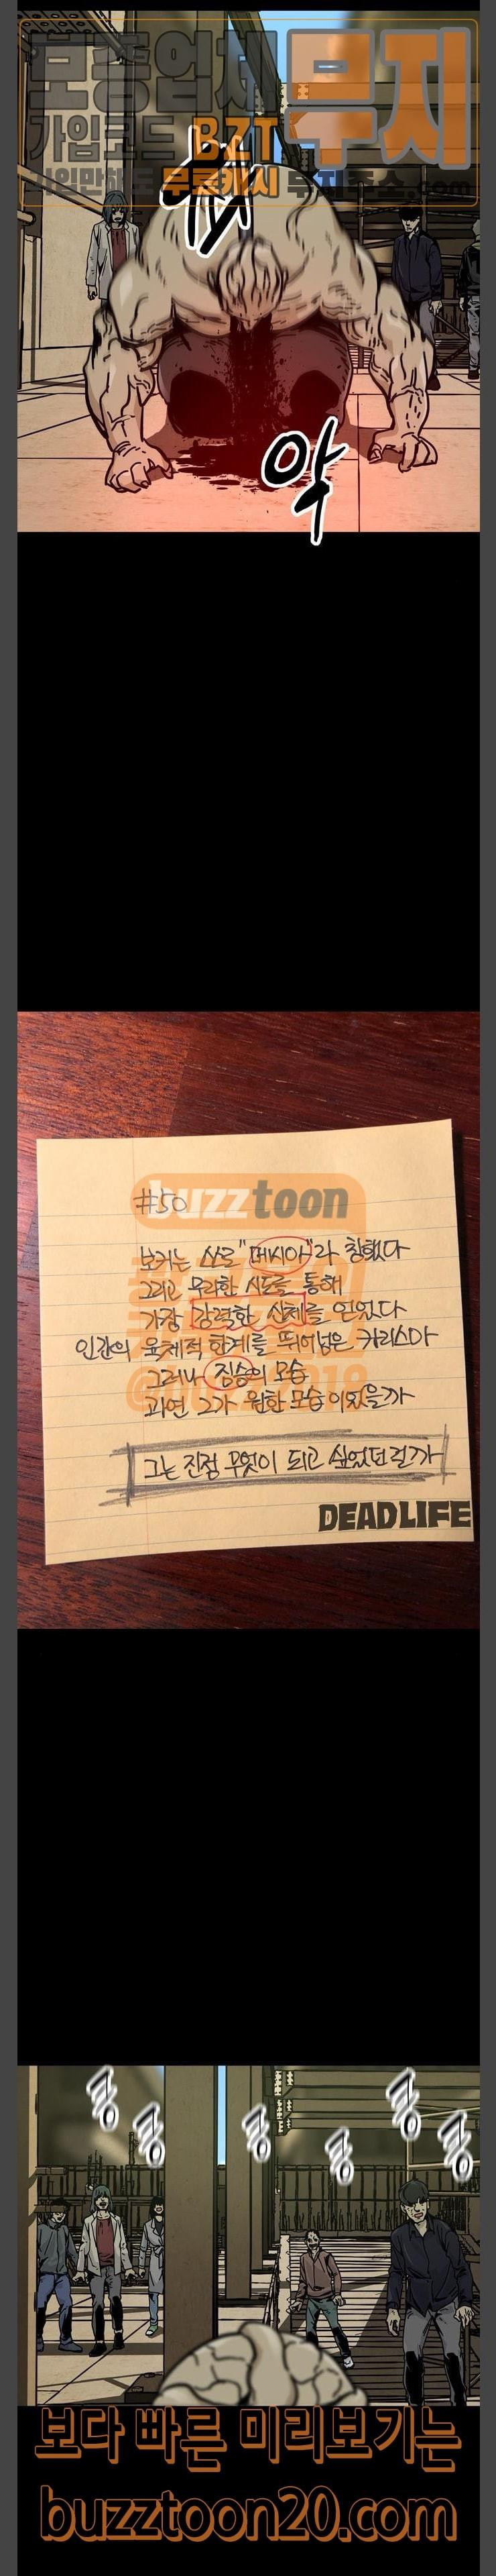 보증업체 무지
가입코드 BZT
가입만해도 무료캐시 무지주소.com
콰
악
buzztoon
#50
보커는 스스로 "메시아"라 칭했다
그리고 무리한 시도를 통해
가장 강력한 신체를 얻었다
인간의 육체적 한계를 뛰어넘은 카리스마
그러나 짐승의 모습
과연 그가 원한 모습이었을까
그는 진정 무엇이 되고 싶었던 걸까
DEADLIFE
킁 킁 킁 킁 킁 킁
보다 빠른 미리보기는
buzztoon20.com